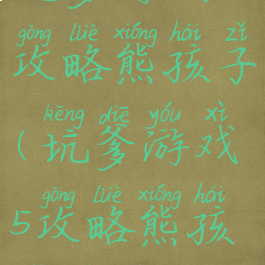 gōng lüè xióng hái zǐ
攻略熊孩子
kēng diē yóu xì
(坑爹游戏
gōng lüè xióng hái
5攻略熊孩